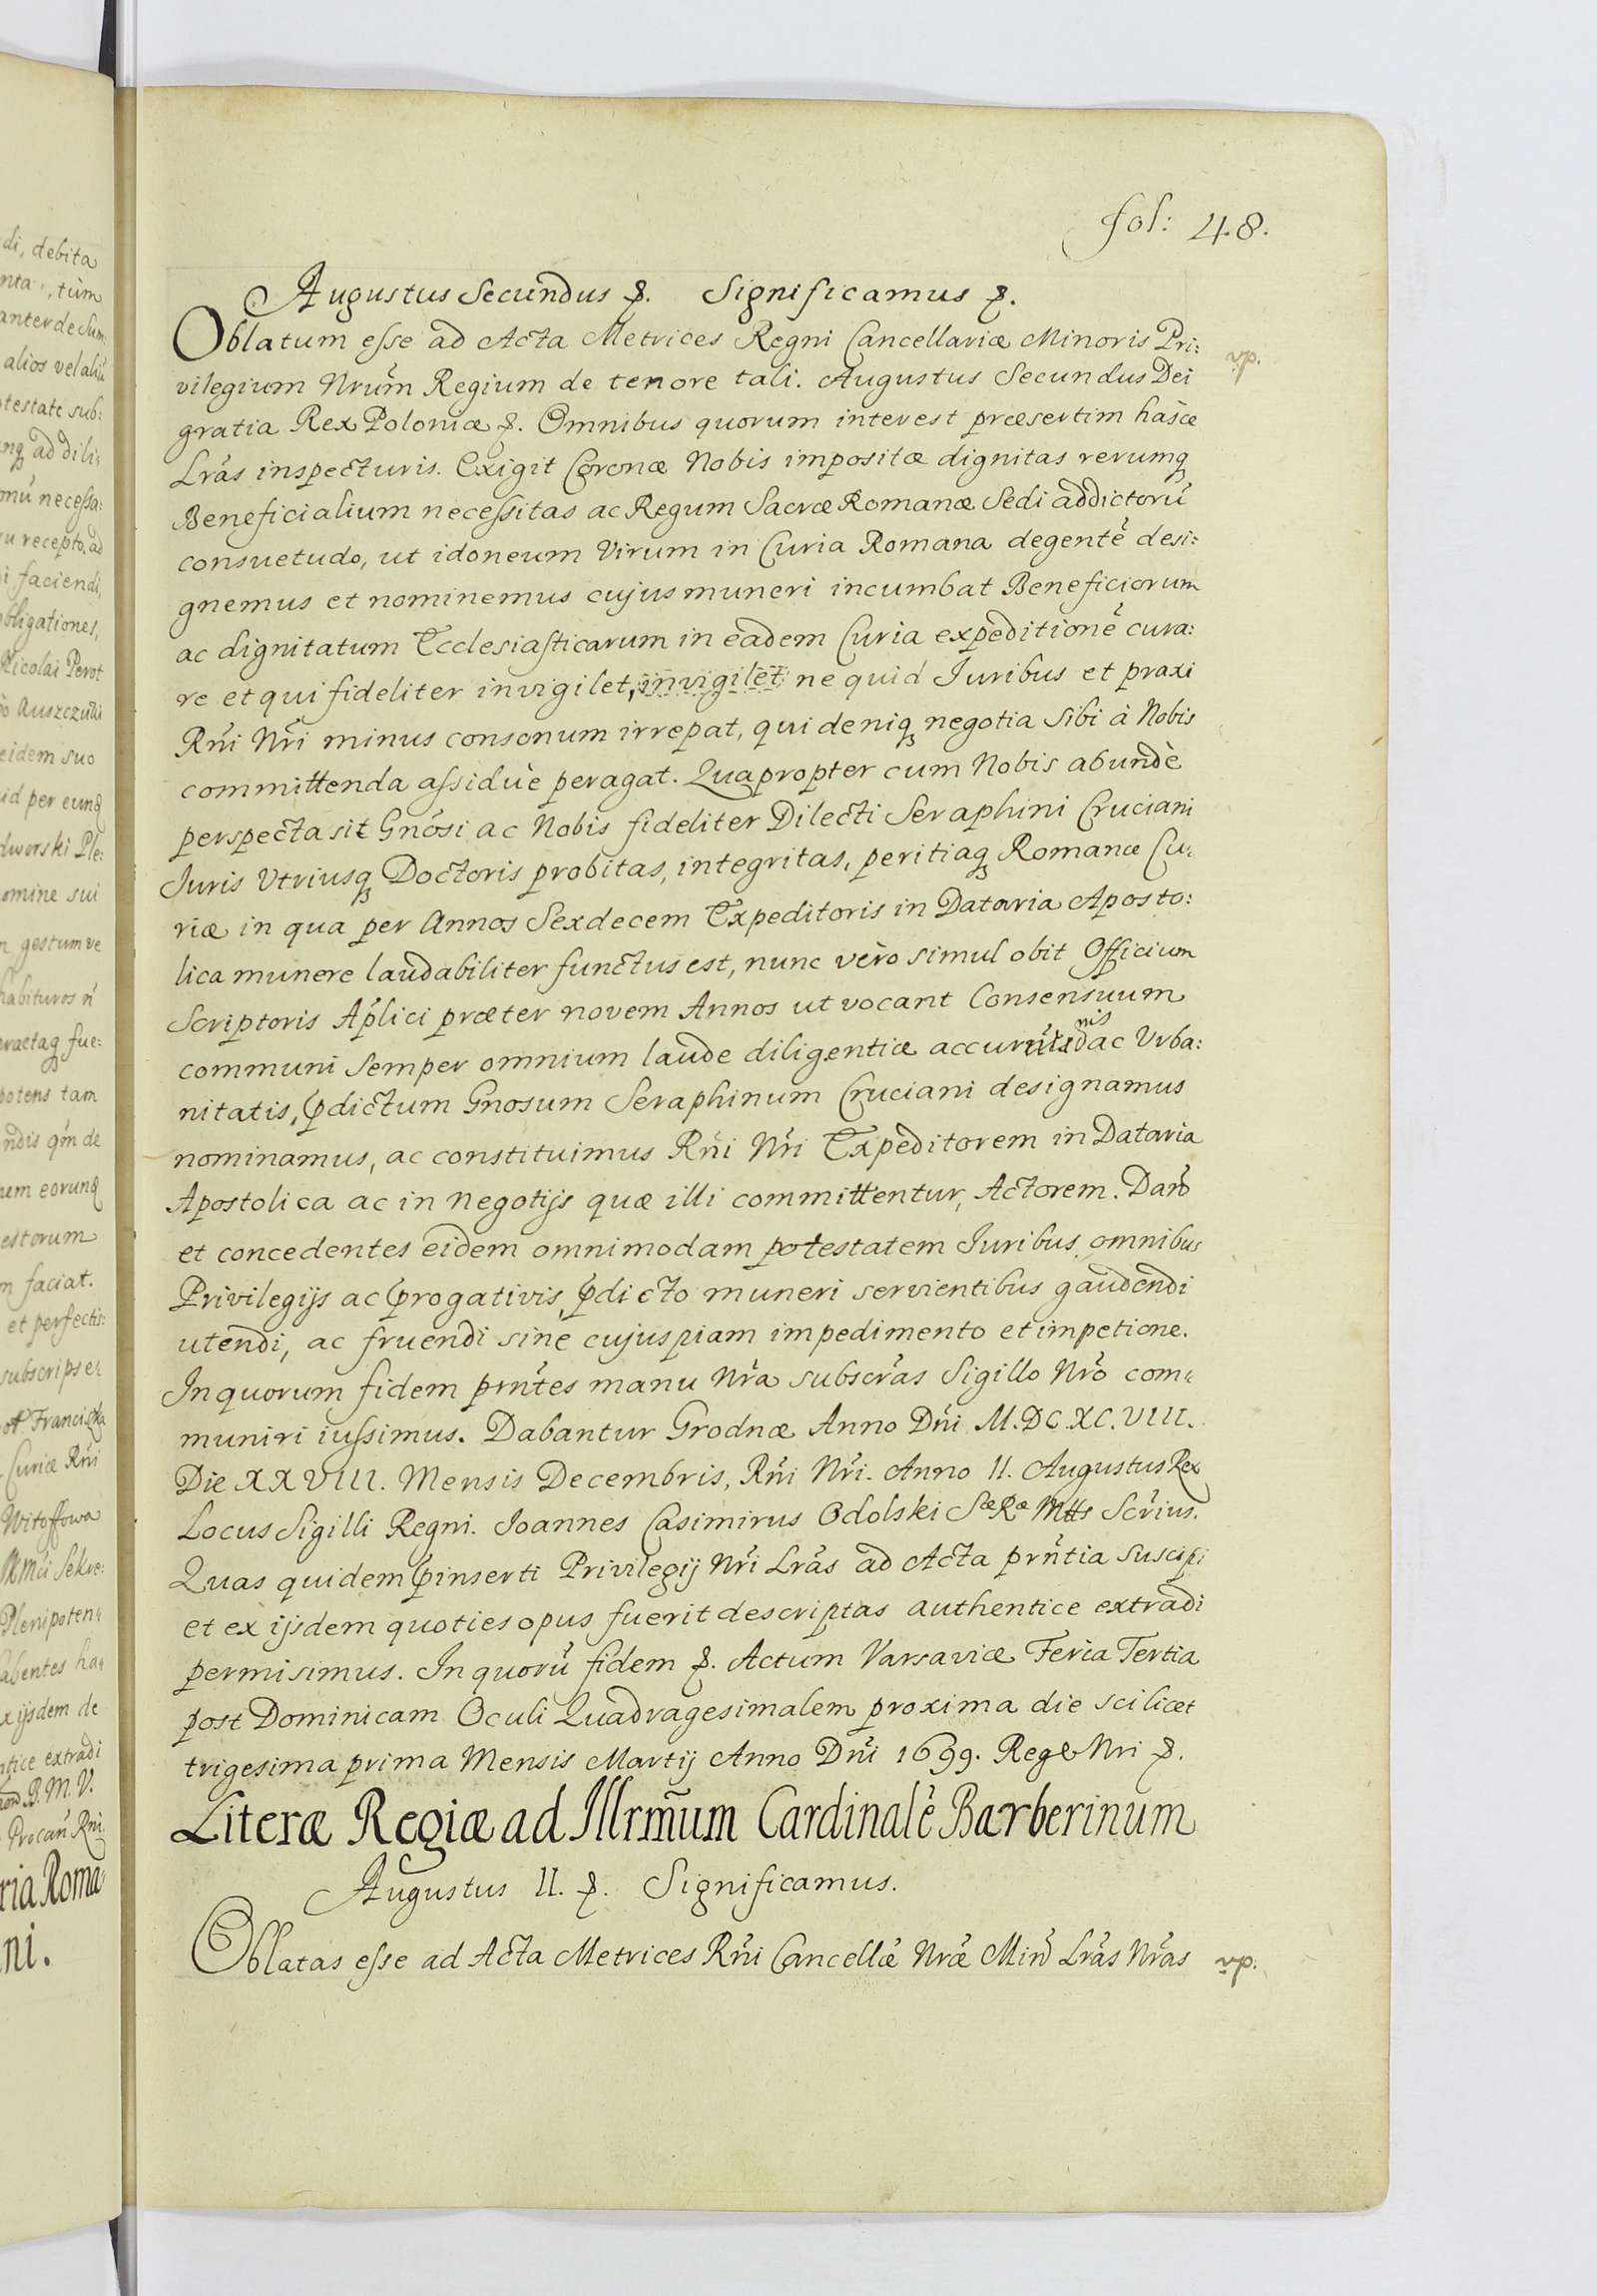 fol: 48.
Augustus Secundus &. Significamus &.
Oblatum esse ad Acta Metrices Regni Cancellariæ Minoris Pri:
vp.
vilegium Nrum Regium de tenore tali. Augustus Secundus Dei
gratia Rex Poloniæ &. Omnibus quorum interest præsertim hasce
Lrás inspecturis. Exigit Coronæ Nobis impositæ dignitas rerumq
Beneficialium necessitas ac Regum Sacræ Romanæ Sedi addictorú
consuetudo, ut idoneum Virum in Curia Romana degenté desi:
gnemus et nominemus cujus muneri incumbat Beneficiorum
ac dignitatum Ecclesiasticarum in eadem Curia expeditioné cura:
re et qui fideliter invigilet, invigilet ne quid Juribus et praxi
Rńi Nŕi minus consonum irrepat, qui deniq negotia Sibi à Nobis
committenda assiduè peragat. Quapropter cum Nobis abundè
perspecta sit Gnósi ac Nobis fideliter Dilecti Seraphini Cruciani
Juris Vtriusq Doctoris probitas, integritas, peritiaq Romanæ Cu:
riæ in qua per Annos Sexdecem Expeditoris in Dataria Aposto:
lica munere laudabiliter functus est, nunc vèro simul obit Officium
Scriptoris Aplici præter novem Annos ut vocant Consensuum
communi semper omnium laude diligentiæ accuratidnis ac Vrba:
nitatis, pdictum Gnosum Seraphinum Cruciani designamus
nominamus, ac constituimus Rńi Nŕi Expeditorem in Dataria
Apostolica ac in negotijs quæ illi committentur, Actorem. Dan
et concedentes eidem omnimodam potestatem Juribus omnibus
Privilegijs ac progativis, pdicto muneri servientibus gaudendi
utendi, ac fruendi sine cujuspiam impedimento et impetione.
In quorum fidem prńtes manu Nŕa subscŕas Sigillo Nŕo com:
muniri iussimus. Dabantur Grodnæ Anno Dńi M.DC.XC.VIII.
Die XXVIII. Mensis Decembris, Rńi Nŕi. Anno II. Augustus Rex
Locus Sigilli Regni. Joannes Casimirus Odolski Sæ Ræ Mttis Scŕius.
Quas quidem pinserti Privilegij Nŕi Lŕas ad Acta prńtia suscipi
et ex ijsdem quoties opus fuerit descriptas authentice extradi
permisimus. In quorú fidem &. Actum Varsaviæ Feria Tertia
post Dominicam Oculi Quadragesimalem proxima die scilicet
trigesima prima Mensis Martij Anno Dńi 1699. Reg& Nri &.
Literæ Regiæ ad Illrm̃um Cardinalé Barberinum
Augustus II. &. Significamus.
Oblatas esse ad Acta Metrices Rńi Cancellæ Nræ Min Lŕas Nŕas
vp.